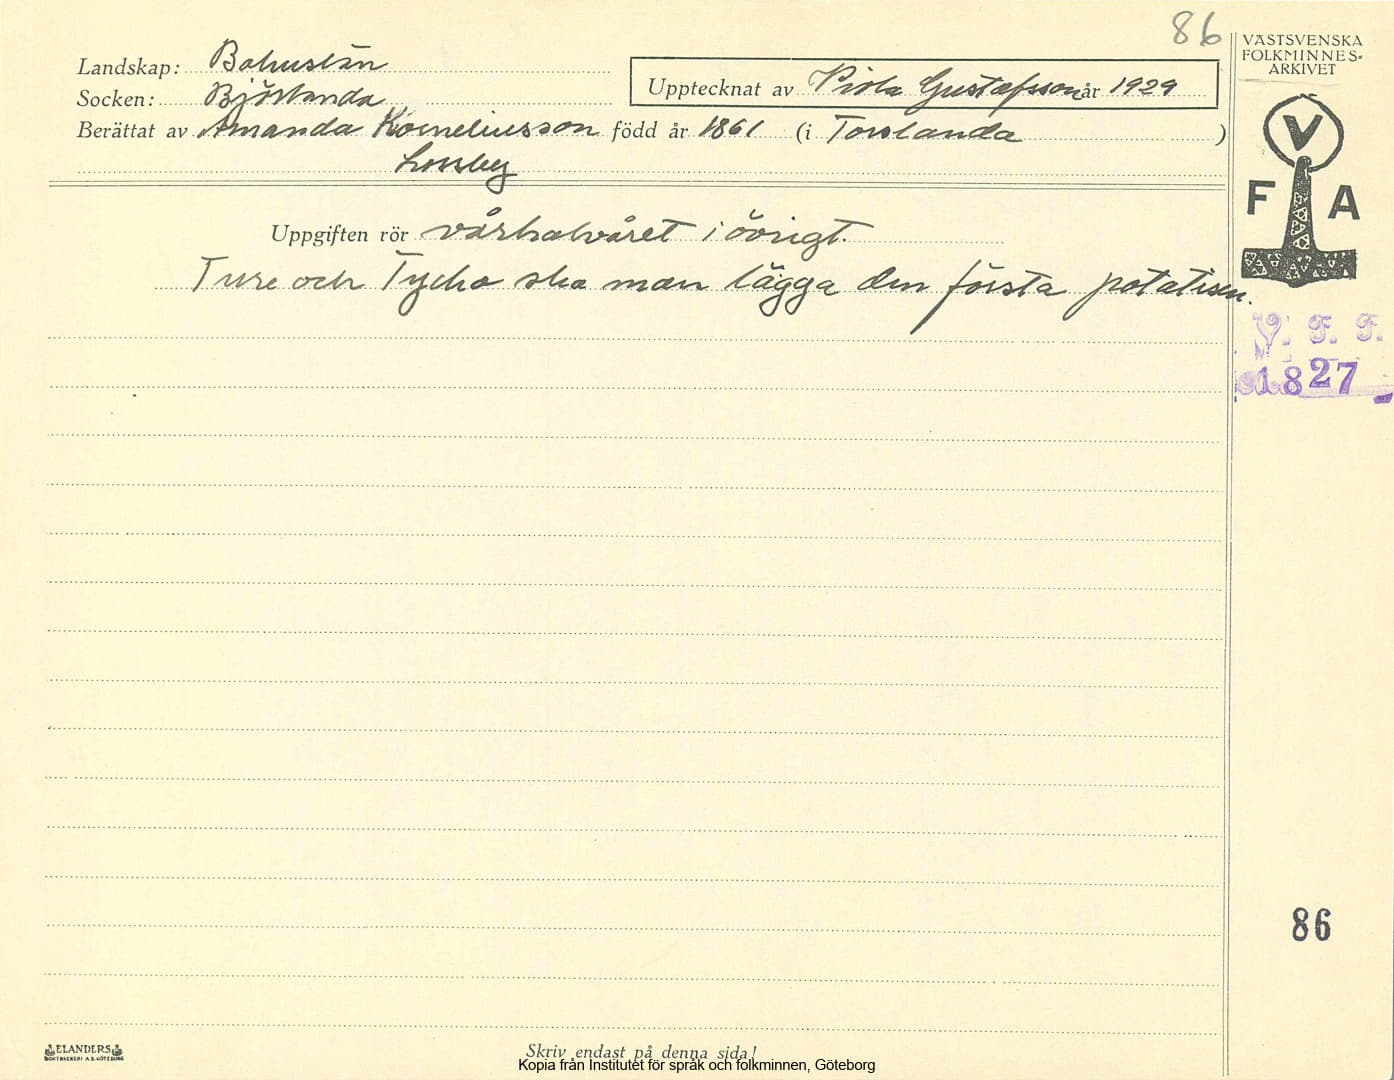 86
VÄSTSVENSKA
FOLKMINNES-
ARKIVET
Landskap: Bohuslän
Upptecknat av Viola Gustafsson år 1929
Socken: Björlanda
Berättat av Amanda Korneliusson född år 1861 (i Torslanda)
Lossby
V
F A
Uppgiften rör vårhalvåret i övrigt.
Ture och Tycho ska man lägga den första potatisen.
V. F. F.
1827
86
ELANDERS
BOKTRYCKERI A.B. GÖTEBORG
Skriv endast på denna sida!
Kopia från Institutet för språk och folkminnen, Göteborg